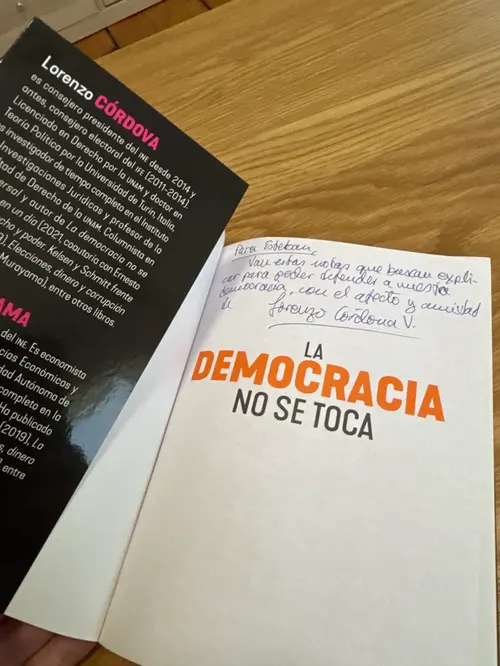 Lorenzo CÓRDOVA
es consejero presidente del INE desde 2014 y
antes, consejero electoral del IFE (2011-2014).
Licenciado en Derecho por la UNAM y doctor en
Teoría Política por la Universidad de Turín, Italia.
investigador de tiempo completo en el Instituto
Investigaciones Jurídicas y profesor de la
tad de Derecho de la UNAM. Columnista en
versal y autor de La democracia no se
en un día (2021), coautorio con Ernesto
cho y poder. Kelsen y Schmitt frente
). Elecciones, dinero y corrupción
Murayama), entre otros libros.
AMA
del INE. Es economista
cias Económicas y
dad Autónoma de
completo en la
Ha publicado
(2019), La
s, dinero
entre
Para Esteban,
Van estas notas que buscan expli-
car para poder defender a nuestra
democracia, con el afecto y amistad
de Lorenzo Córdova V.
LA
DEMOCRACIA
NO SE TOCA